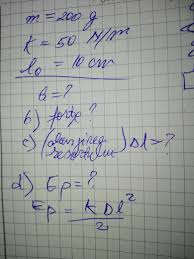 m = 200 g
K = 50 N/m
l₀ = 10 cm
G = ?
b) forțe ?
c) (alungirea resortului) Δl = ?
d) Ep = ?
Ep = KΔl²/2